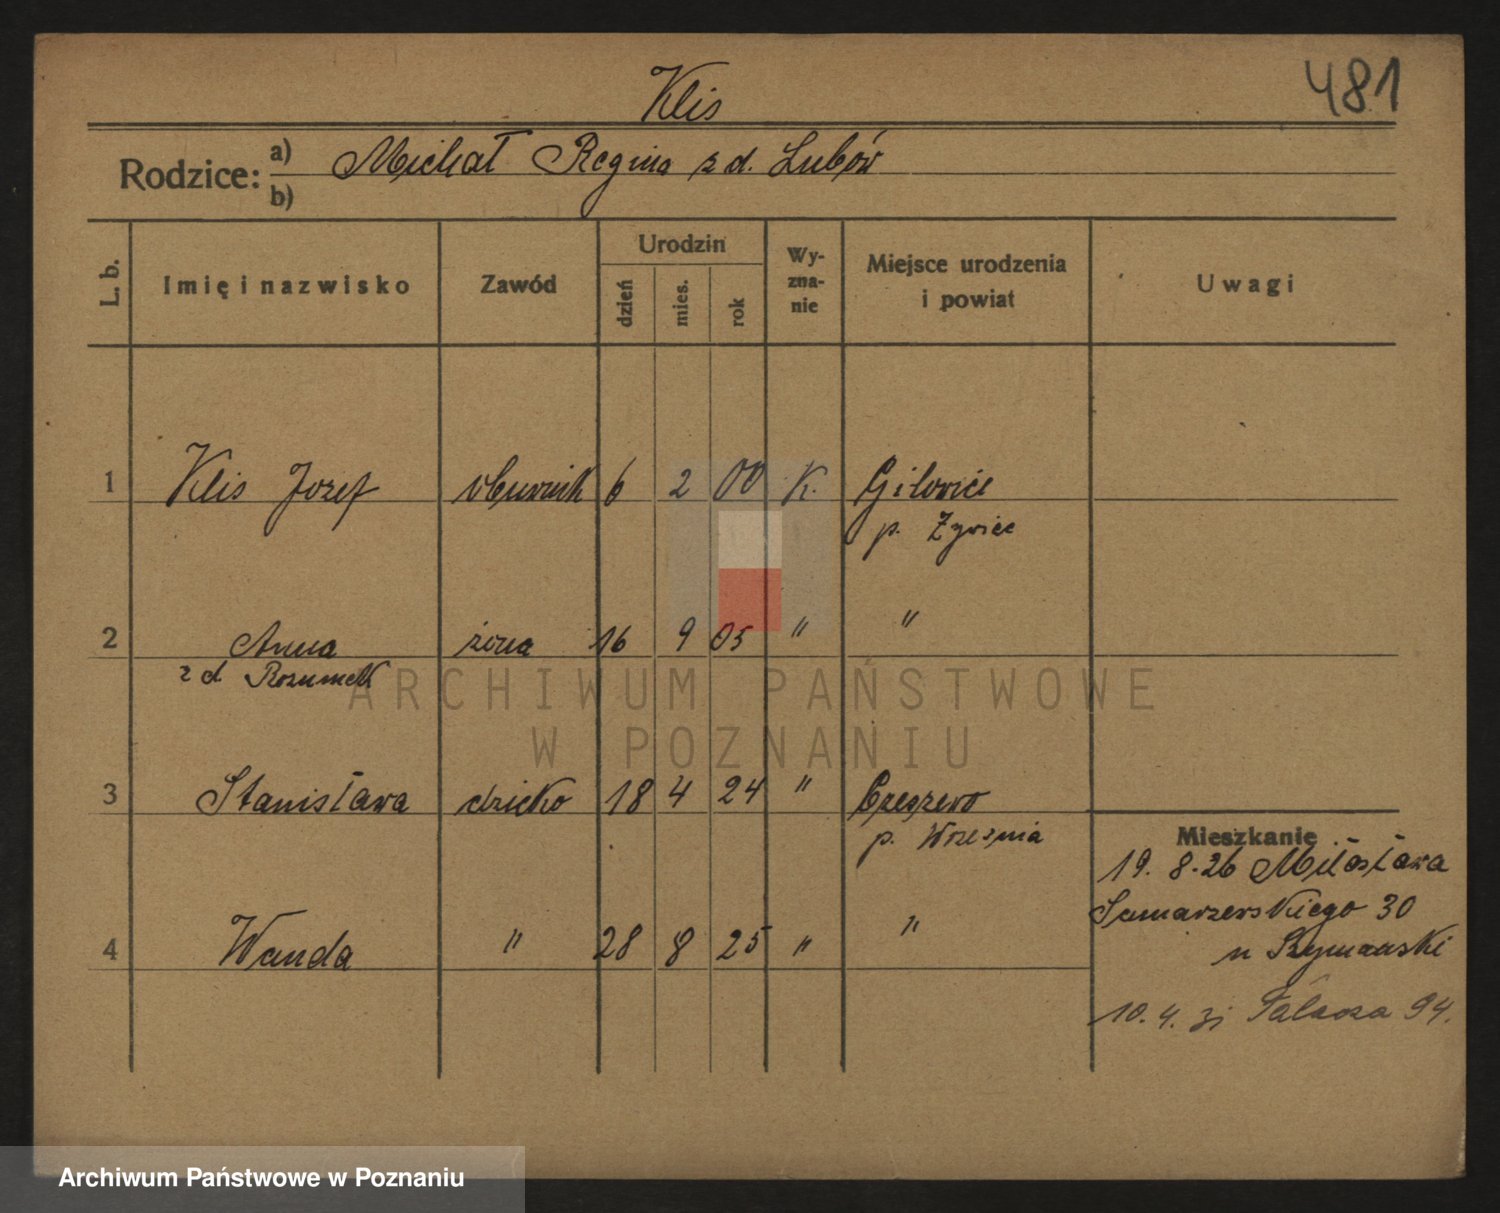 481
Klis
Rodzice: a) Michał Regina z d. Lubów
b)
L. b. Imię i nazwisko Zawód Urodzin dzień mies. rok Wy-zna-nie Miejsce urodzenia i powiat Uwagi
1 Klis Jozef obuwnik 6 2 00 K. Gilowice
p. Zywiec
2 Anna żona 16 9 05 " "
z d Rozumek
ARCHIWUM PAŃSTWOWE
W POZNANIU
3 Stanisława dziecko 18 4 24 " Czeszewo
p. Wrzesnia
Mieszkanie
19. 8.26 Miłosława
Samarzewskiego 30
4 Wanda " 28 8 25 " "
u Szymanski
10. 4. 31 Palacza 94.
Archiwum Państwowe w Poznaniu